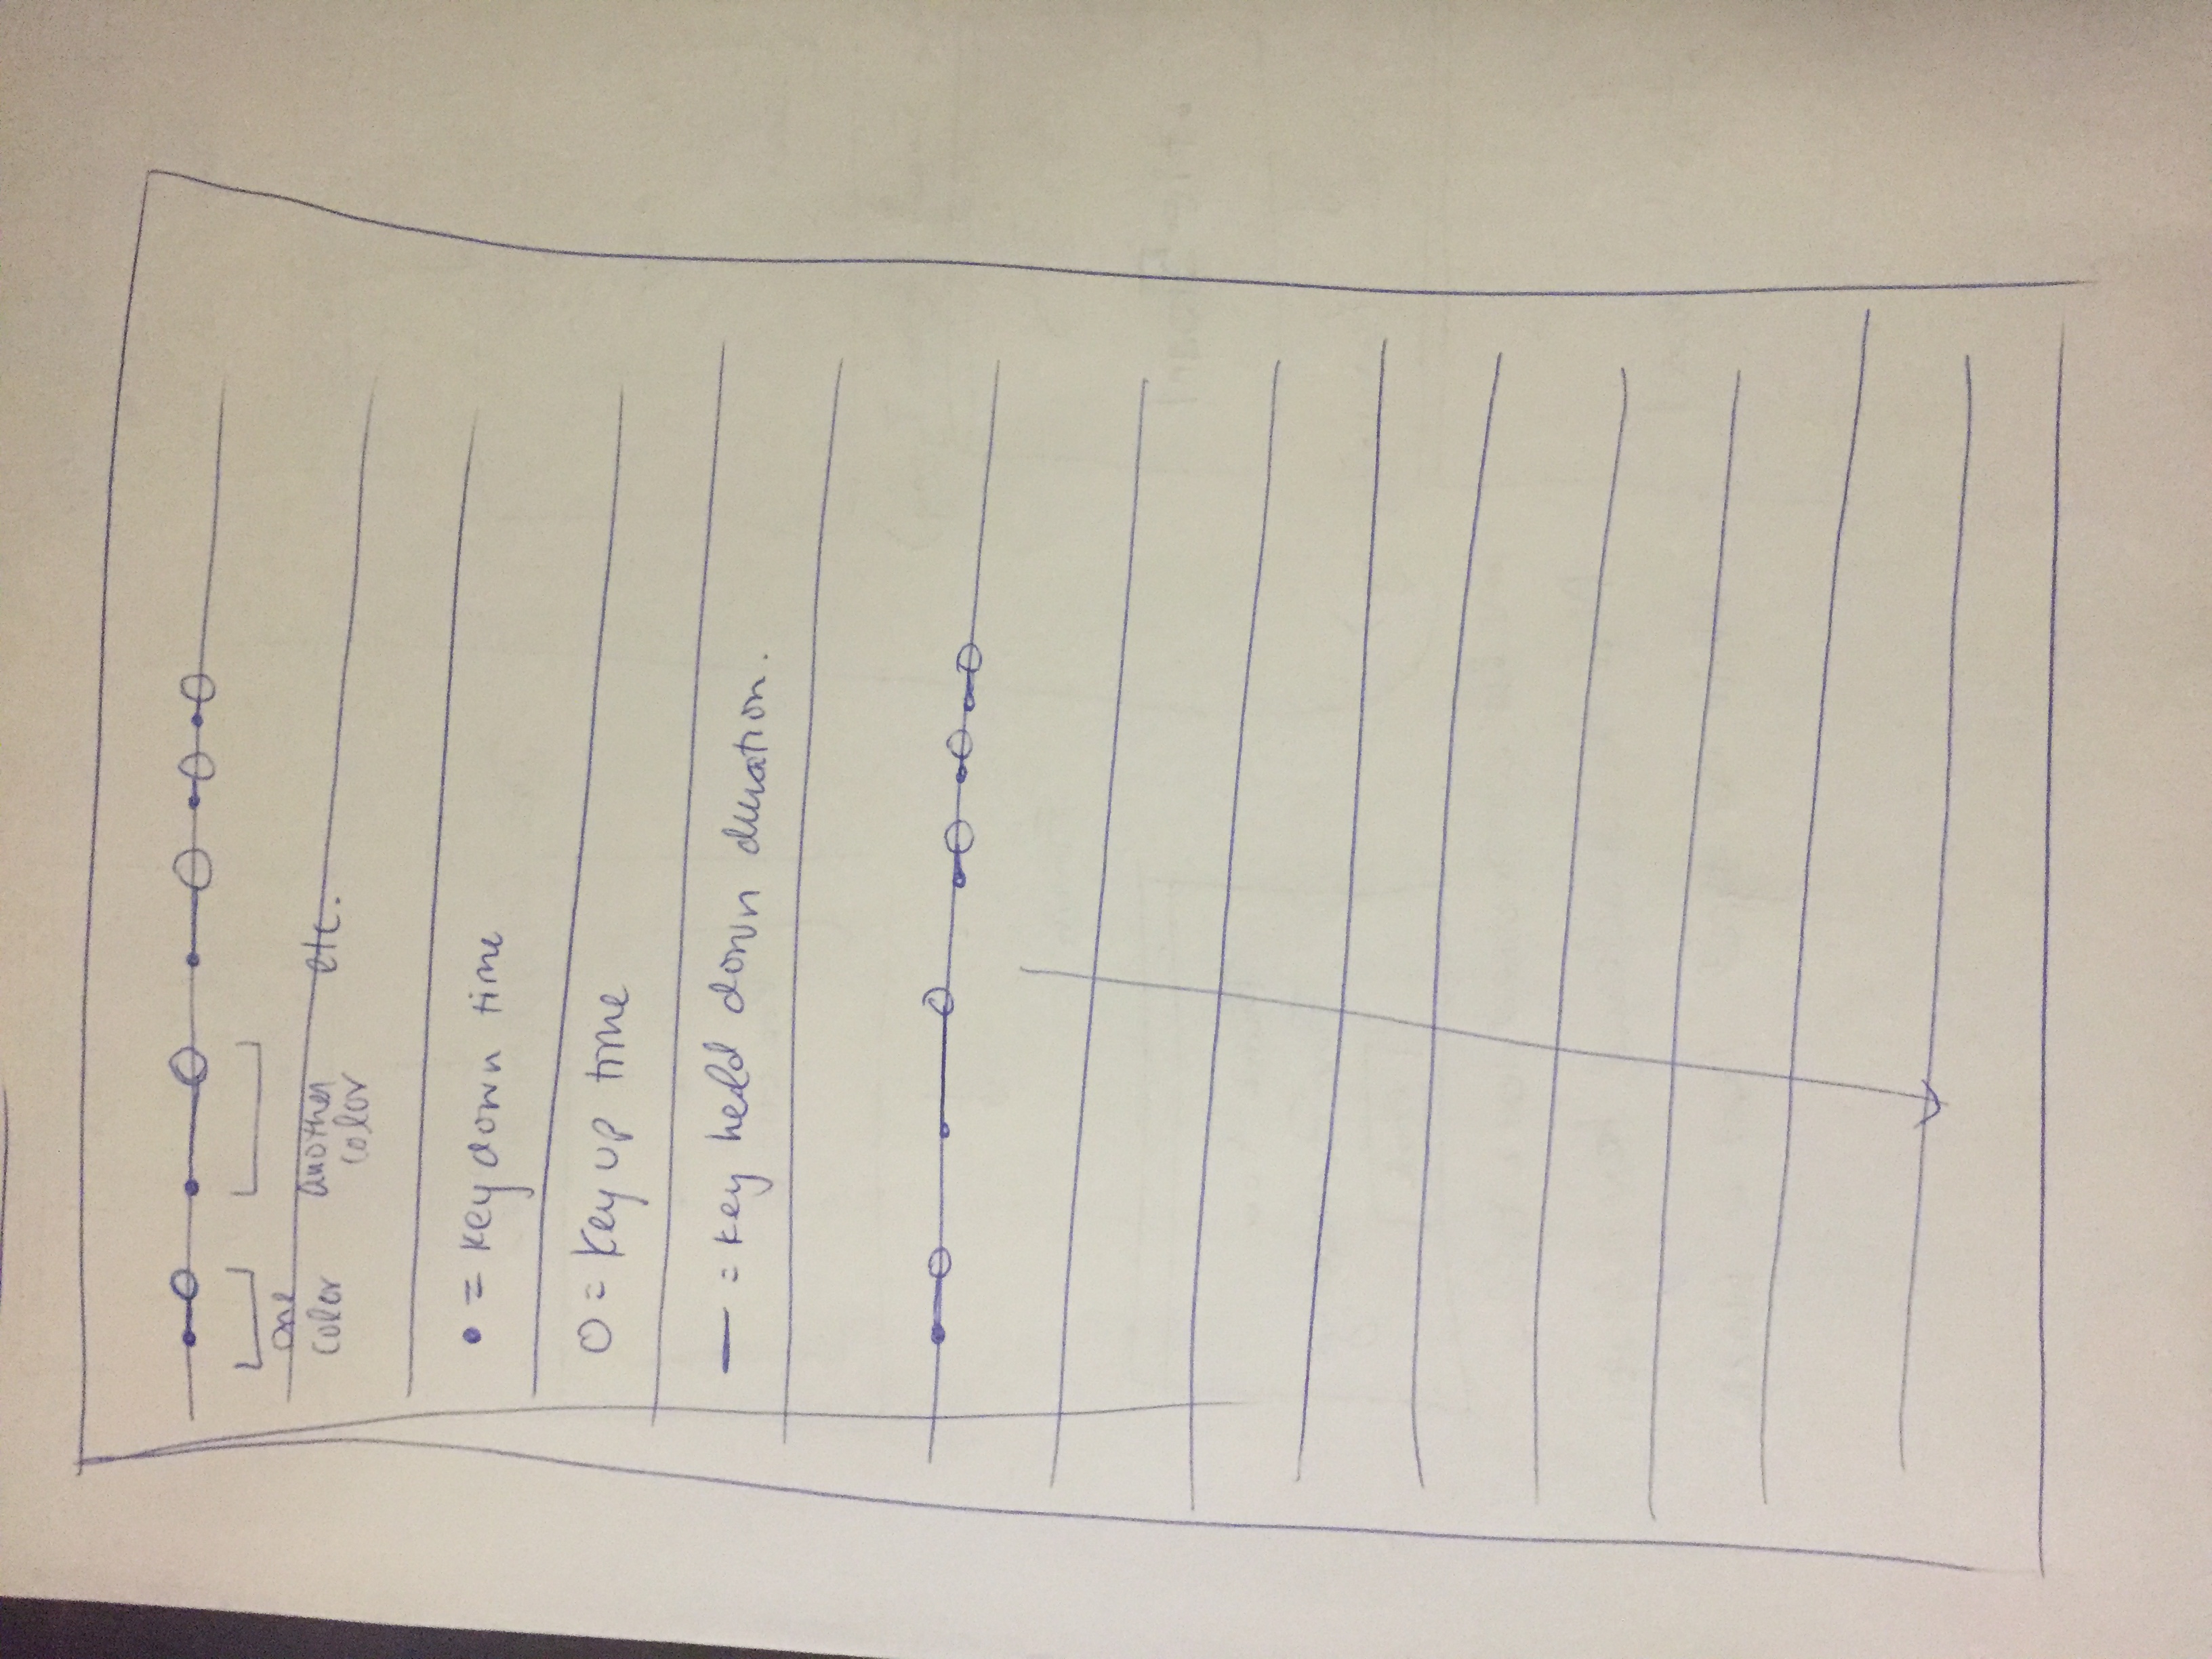 one
color
another
color
etc.
• = key down time
O = key up time
— = key held down duration.